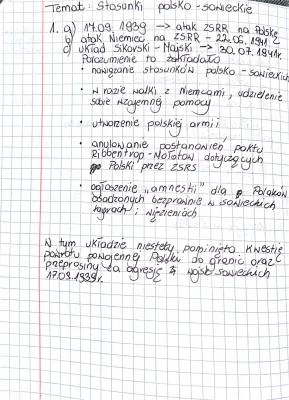 Temat: Stosunki polsko-sowieckie
1. a) 17.09. 1939 → atak ZSRR na Polskę
b) atak Niemiec na ZSRR - 22.06. 1941
c) układ Sikorski - Majski → 30.07.1941r.
Porozumienie to zakładało
• nawiązanie stosunków polsko-sowieckich
• w razie walki z Niemcami, udzielenie
sobie wzajemnej pomocy
• utworzenie polskiej armii
• anulowanie postanowień paktu
Ribbentrop - Mołotow dotyczących
Polski przez ZSRS
• ogłoszenie "amnestii" dla Polaków
osadzonych bezprawnie w sowieckich
łagrach i więzieniach
W tym układzie niestety pominięto kwestię
powrotu powojennej Polski do granic oraz
przeprosiny za agresję wojsk sowieckich
17.09.1939r.